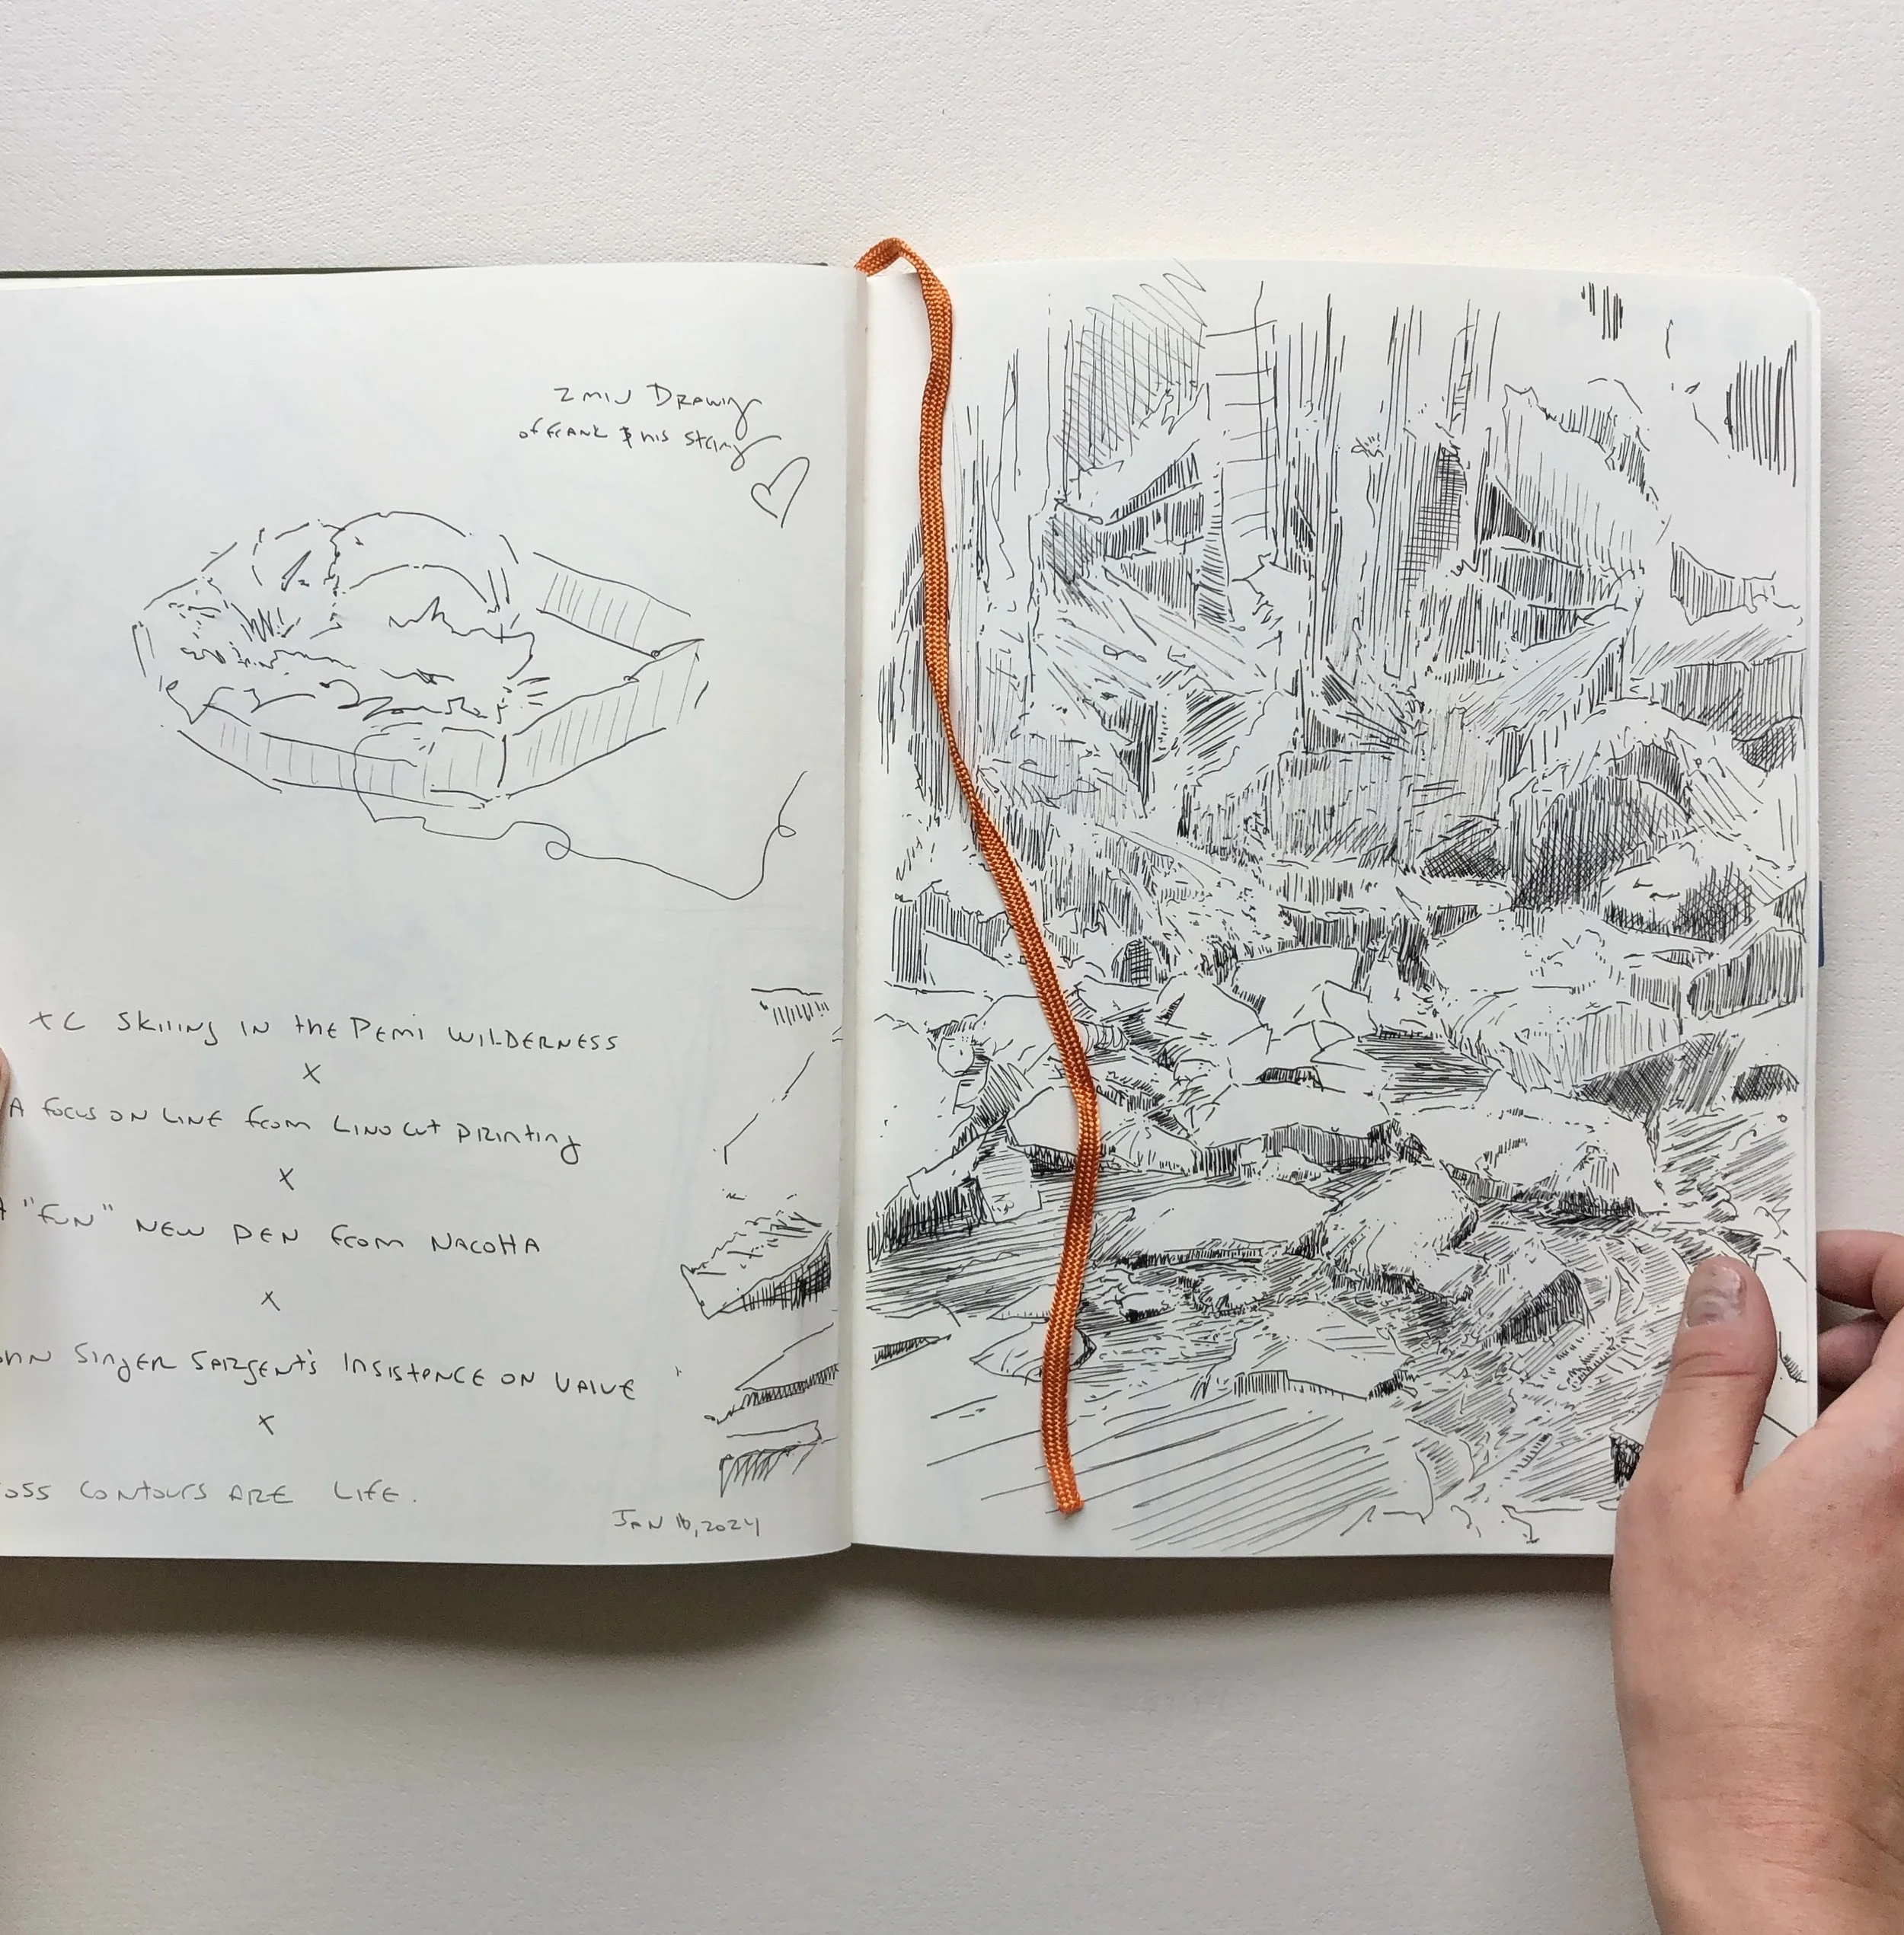 2 MIN DRAWING
of FRANK & HIS String
XC Skiing IN the PEMI WILDERNESS
X
A focus ON LINE from LINO cut PRINTING
X
"FUN" NEW PEN from
X
SINGER SARGENT'S INSISTENCE ON VALUE
X
CONTOURS ARE LIFE.
JAN 16, 2024